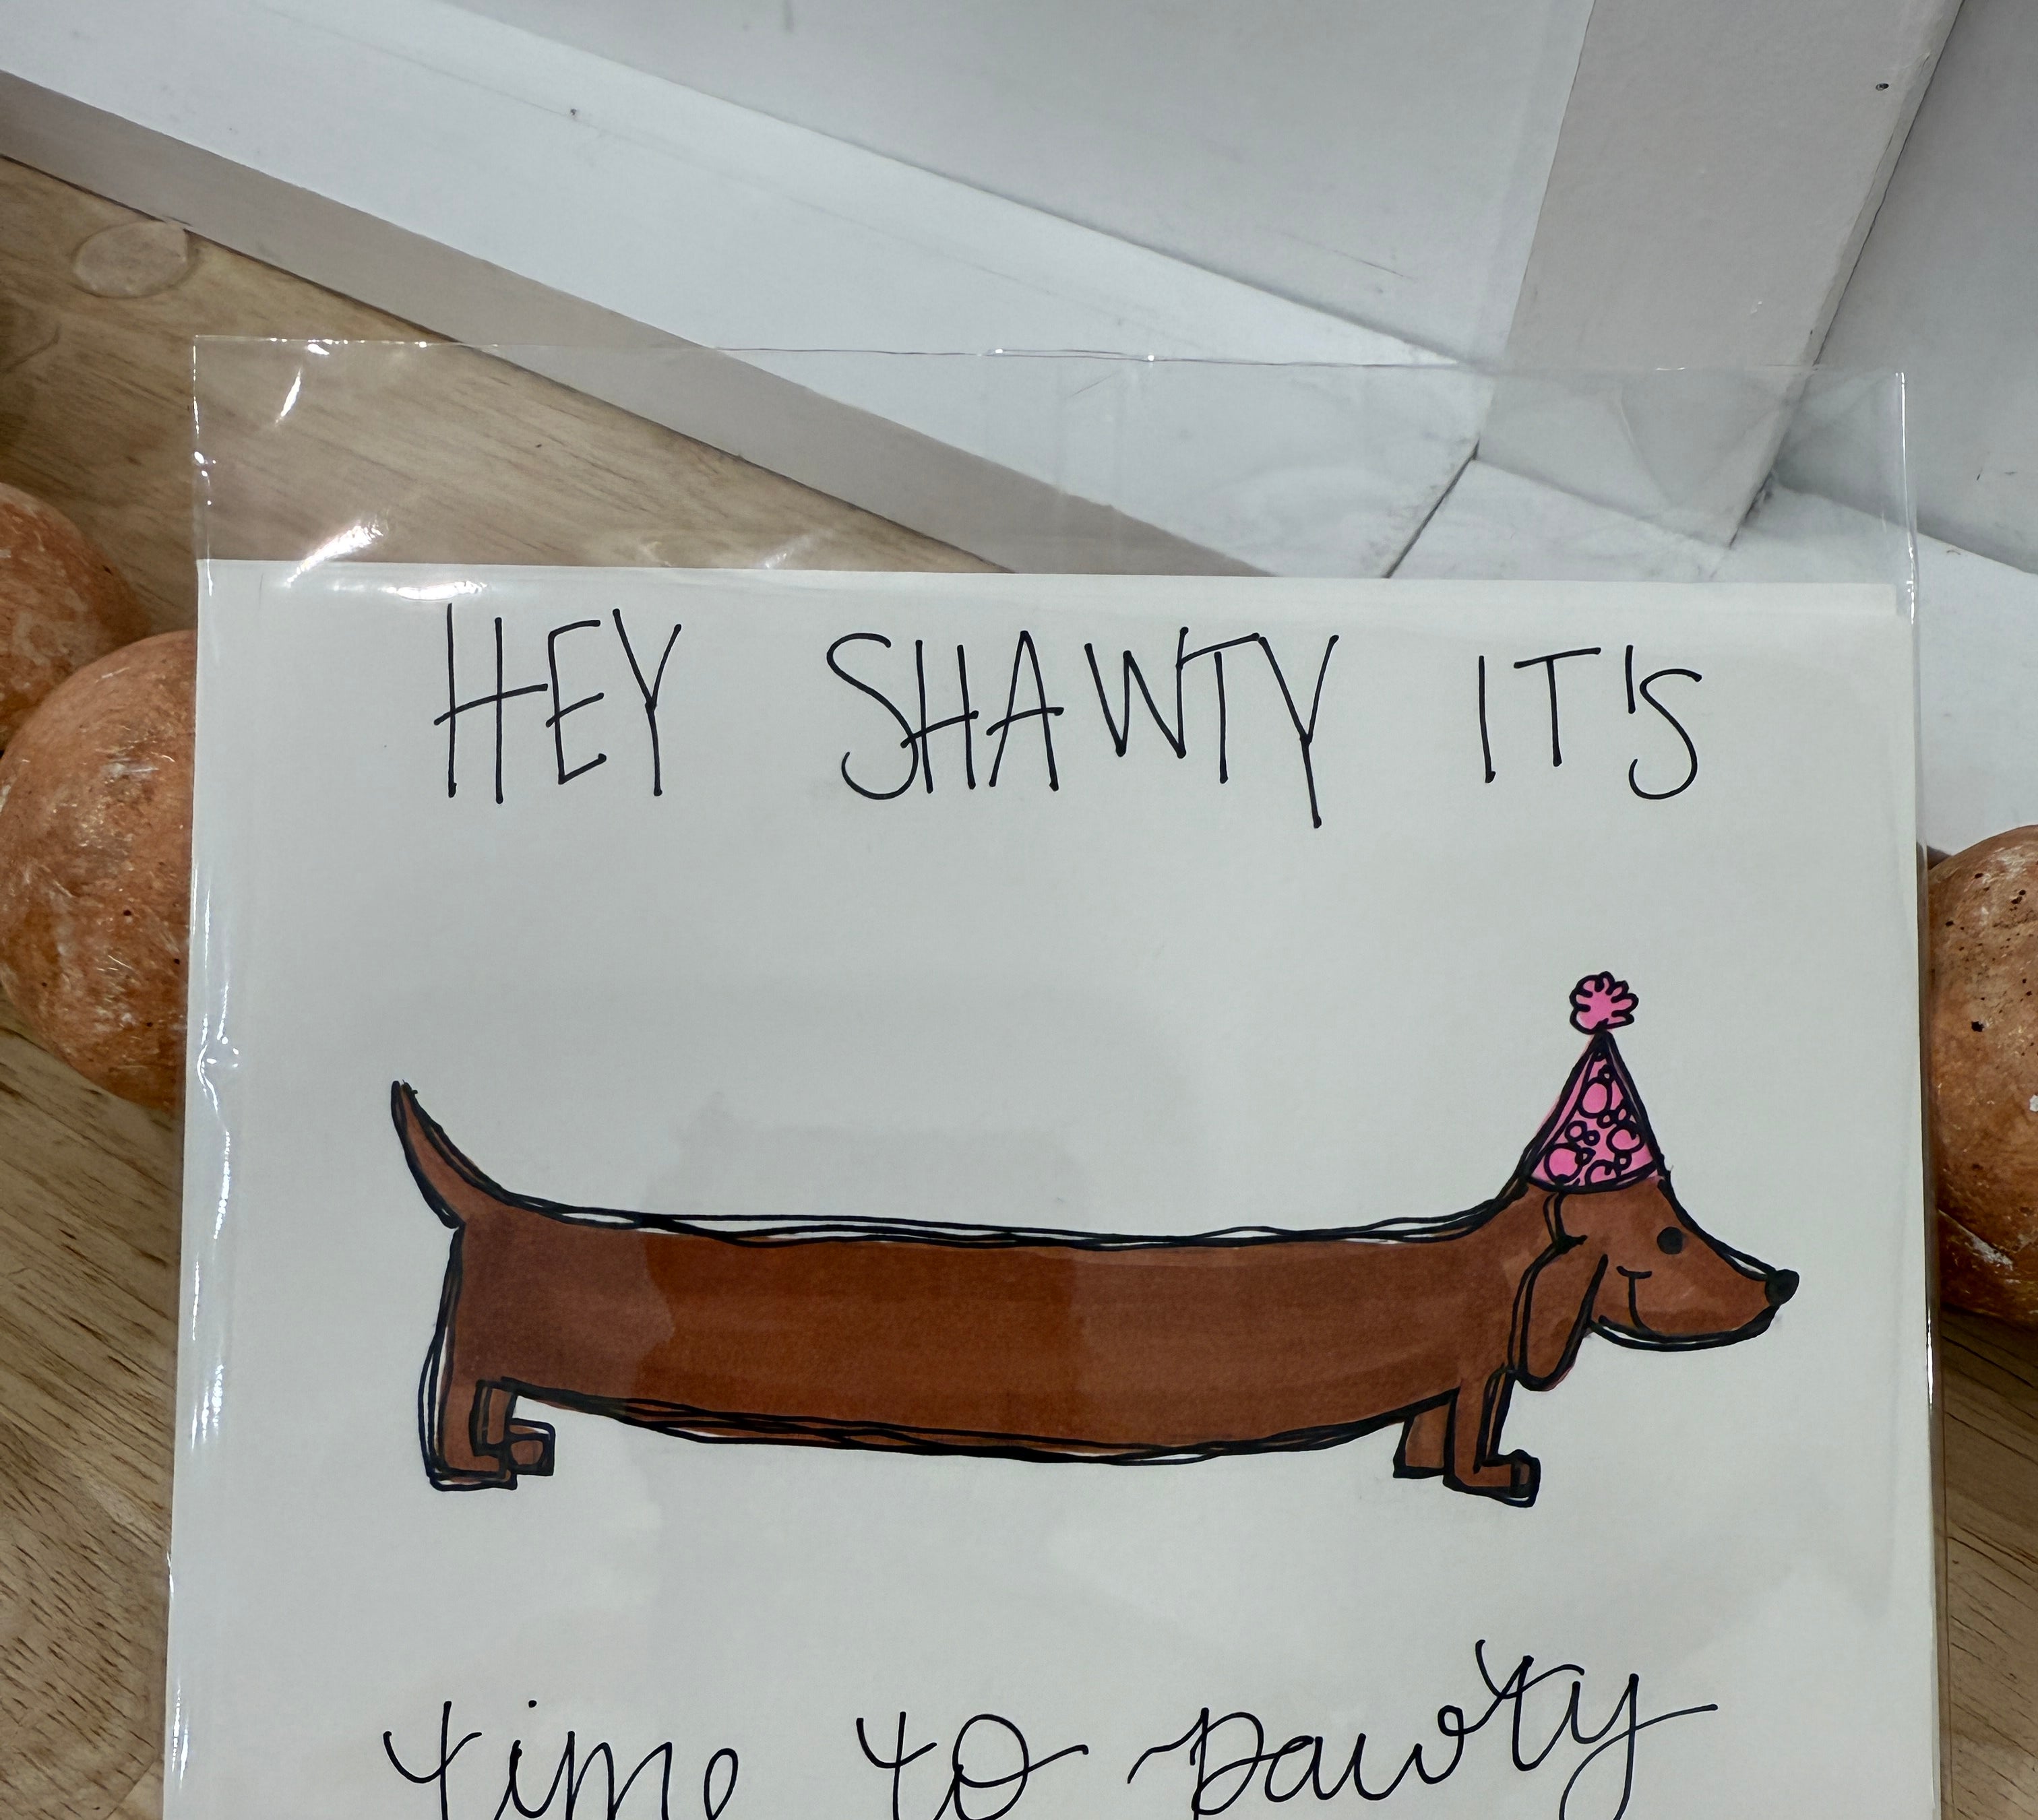 HEY SHAWTY IT'S
time to pawty